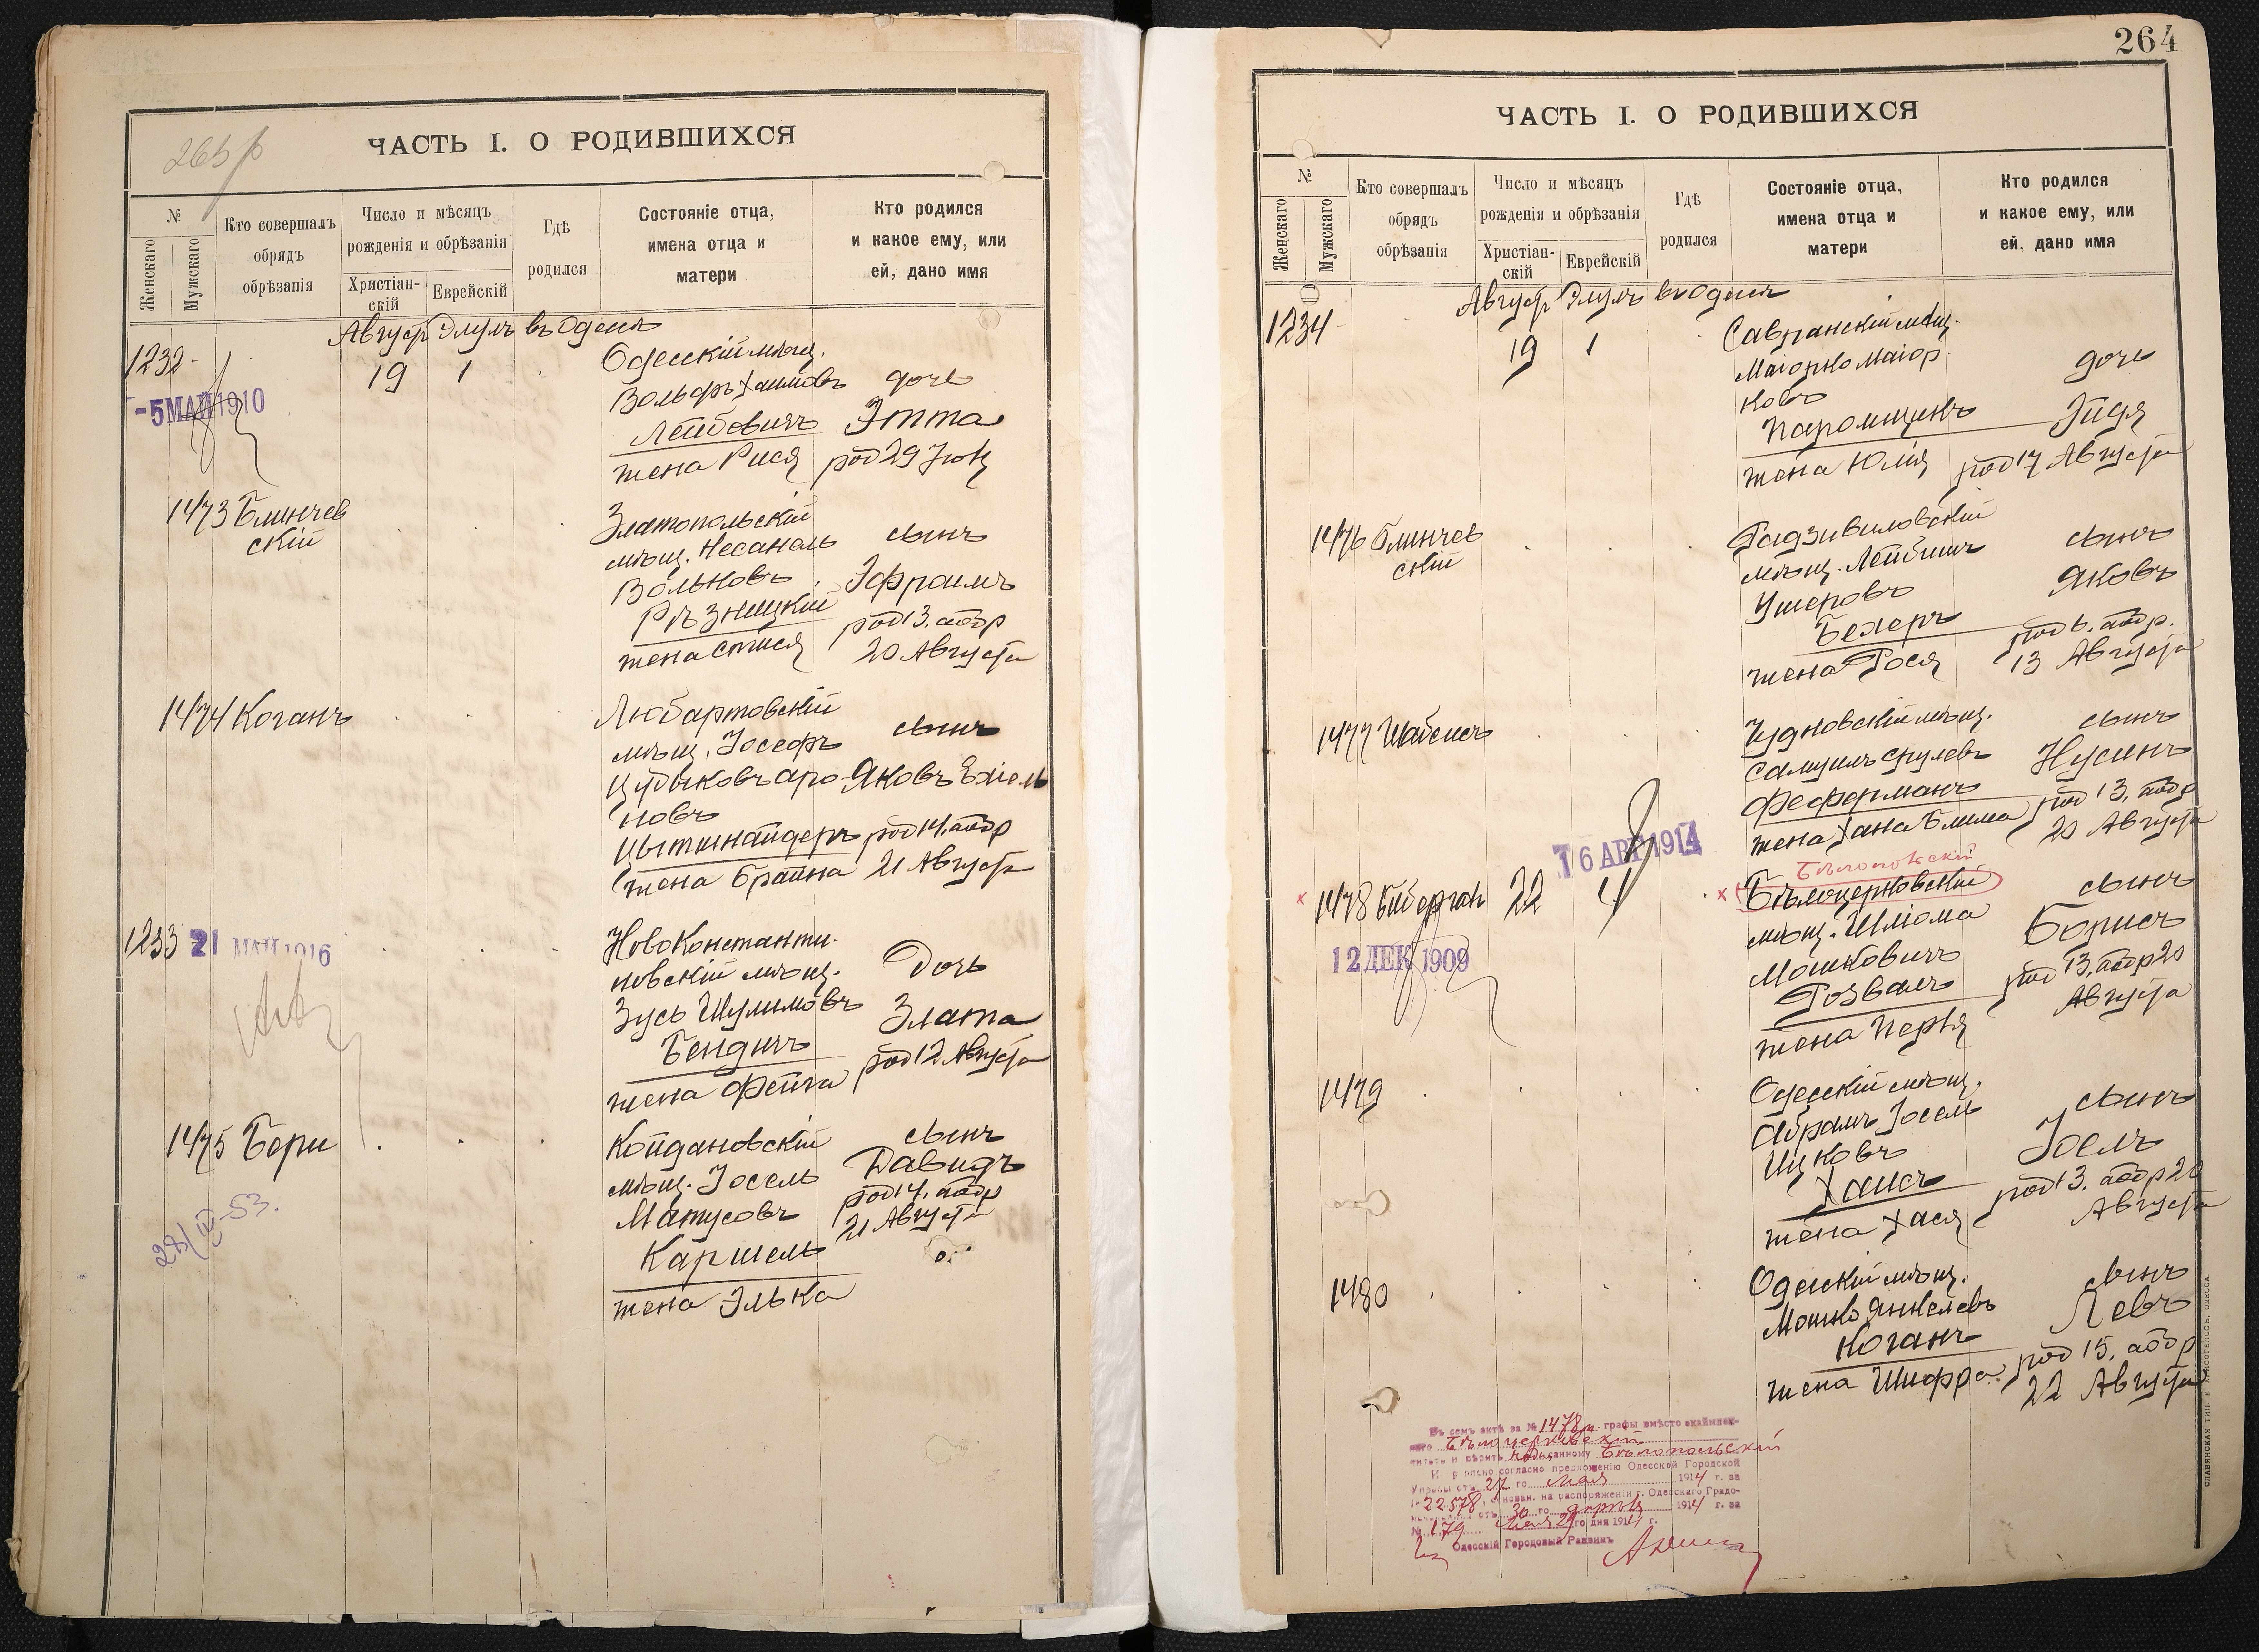 263 р
ЧАСТЬ I. О РОДИВШИХСЯ
№
Женскаго
Мужскаго
Кто совершалъ
обрядъ
обрѣзанія
Число и мѣсяцъ
рожденія и обрѣзанія
Христіан-
скій
Еврейскій
Гдѣ
родился
Состояніе отца,
имена отца и
матери
Кто родился
и какое ему, или
ей, дано имя
Август Элулъ въ Одессѣ
1232
19 1
Одесскій мѣщ.
Вольфъ Хаимовъ
Лейбовичъ
жена Рися
дочь
Этта
род 29 Іюля
-5 МАЙ 1910
1473 Блинчев
скій
Златопольскій
мѣщ. Несанель
Вольковъ
Рѣзницкій
жена Стися
сынъ
Эфроимъ
род 13. аобр
20 Августа
1474 Коганъ
Любартовскій
мѣщ. Іосефъ
Цудыковъ Аро
новъ
Цытшнайдеръ
жена Брайна
сынъ
Яковъ Ехіель
род 14. аобр
21 Августа
1233
21 МАЙ 1916
НовоКонстанти-
новскій мѣщ.
Зусь Шулимовъ
Бендичъ
жена Фейга
Дочь
Злата
род 12 Августа
1475 Бери
Койдановскій
мѣщ. Іосель
Матусовъ
Каршель
жена Элька
сынъ
Давидъ
род 14. аобр
21 Августа
28/IV-53.
264
ЧАСТЬ I. О РОДИВШИХСЯ
№
Женскаго
Мужскаго
Кто совершалъ
обрядъ
обрѣзанія
Число и мѣсяцъ
рожденія и обрѣзанія
Христіан-
скій
Еврейскій
Гдѣ
родился
Состояніе отца,
имена отца и
матери
Кто родился
и какое ему, или
ей, дано имя
Август Элулъ въ Одессѣ
1234
19 1
Савранскій мѣщ.
Маіорко Маіор
ковъ
Паромщикъ
жена Юлія
дочь
Эйдя
род 17 Августа
1476 Блинчев
скій
Радзивиловскій
мѣщ. Лейбишъ
Ушеровъ
Бехеръ
жена Рося
сынъ
Яковъ
род 6. аобр.
13 Августа
1477 Шабсисъ
Чудновскій мѣщ.
Самуилъ Срулевъ
Фефферманъ
жена Хана Блима
сынъ
Нусинъ
род 13. аобр
20 Августа
16 АПР 1914
1478
22 4
Бѣлопольскій
Бѣлоцерковскій
мѣщ. Шліома
Мошковичъ
Розвалъ
жена Перля
сынъ
Борисъ
род 13. аобр 20
Августа
12 ДЕК 1909
1479
Одесскій мѣщ.
Абрамъ Іосель
Ицковъ
Хаисъ
жена Хася
сынъ
Іоель
род 13. аобр 20
Августа
1480
Одесскій мѣщ.
Мошко Янкелевъ
Коганъ
жена Шифра
сынъ
Левъ
род 15. аобр
22 Августа
Въ семъ актѣ за № 1478 м. графы вмѣсто
Бѣлоцерковскій
Бѣлопольскій
согласно предложенію Одесской Городской
Управы отъ 27 го Мая 1914 г. за
№ 22578, основан. на распоряженіи г. Одесскаго Градо-
начальника отъ 30 го 1914 г. за
№ 179 29 го дня 1914 г.
Одесскій Городовый Раввинъ
СЛАВЯНСКАЯ ТИП. Е. ХРИСОГЕЛОСЪ, ОДЕССА.